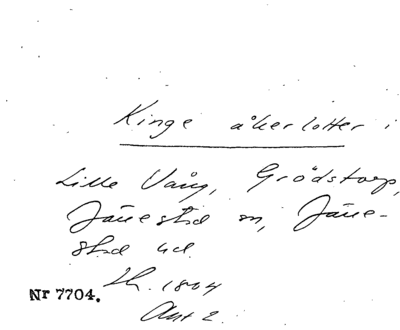 Kinge åkerlotter i
Lille Vång, Grödstorp,
Järrestad sn, Järre-
stad hd.
Lh. 1804
Akt 2.
Nr 7704.